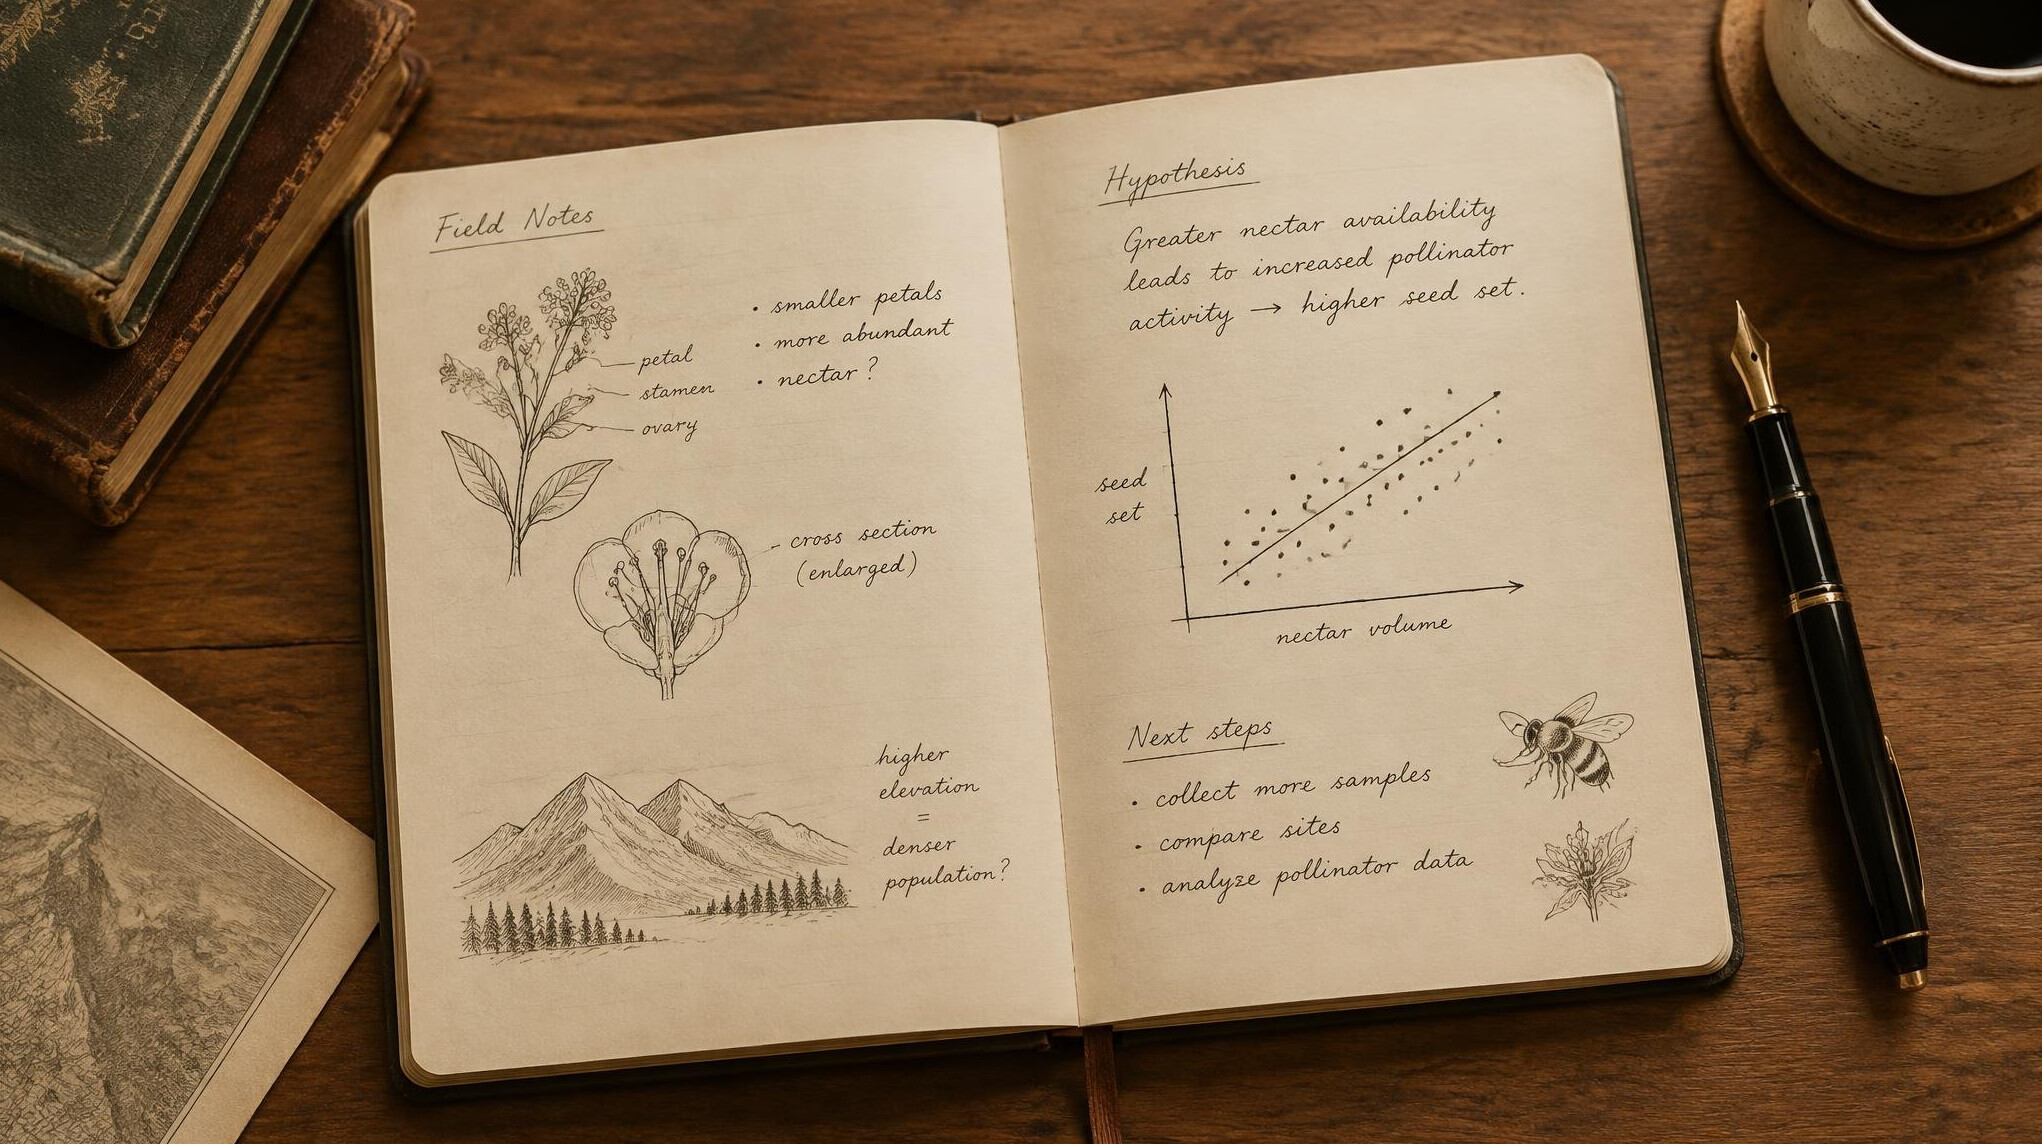 Field Notes
petal
stamen
ovary
• smaller petals
• more abundant
• nectar?
cross section
(enlarged)
higher
elevation
=
denser
population?
Hypothesis
Greater nectar availability
leads to increased pollinator
activity → higher seed set.
seed
set
nectar volume
Next steps
• collect more samples
• compare sites
• analyze pollinator data